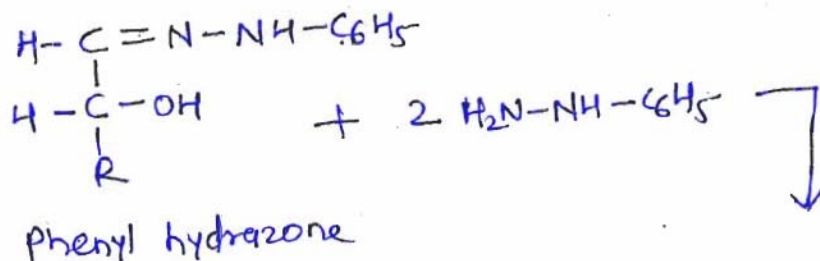 H-C=N-NH-C6H5
H-C-OH + 2 H2N-NH-C6H5
R
Phenyl hydrazone